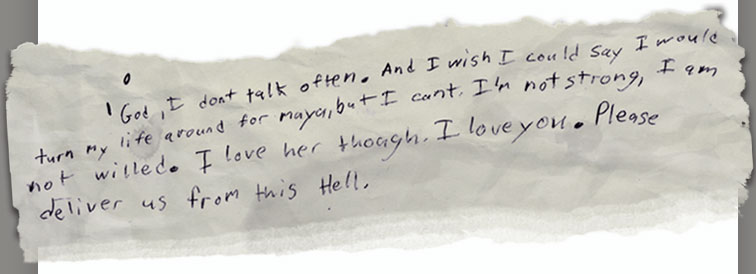 God, I dont talk often. And I wish I could say I would
turn my life around for maya, but I cant. I'm not strong, I am
not willed. I love her though. I love you. Please
deliver us from this Hell.